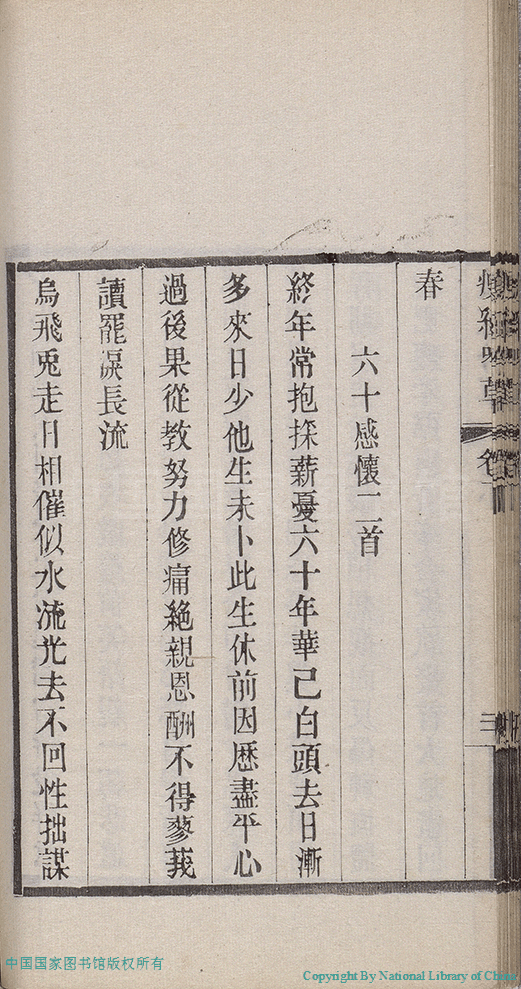 春
六十感懷二首
終年常抱採薪憂六十年華已白頭去日漸
多來日少他生未卜此生休前因歷盡平心
過後果從教努力修痛絕親恩酬不得蓼莪
讀罷淚長流
烏飛兎走日相催似水流光去不回性拙謀
中国国家图书馆版权所有
Copyright By National Library of China